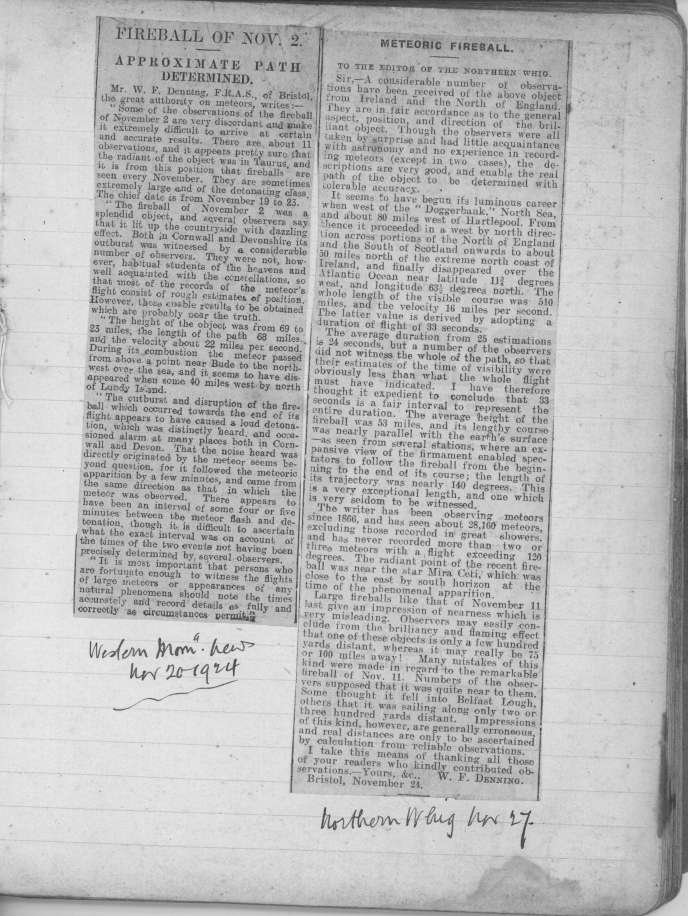 FIREBALL OF NOV. 2.
APPROXIMATE PATH
DETERMINED.
Mr. W. F. Denning, F.R.A.S., of Bristol,
the great authority on meteors, writes:—
"Some of the observations of the fireball
of November 2 are very discordant and make
it extremely difficult to arrive at certain
and accurate results. There are about 11
observations, and it appears pretty sure that
the radiant of the object was in Taurus, and
it is from this position that fireballs are
seen every November. They are sometimes
extremely large and of the detonating class.
The chief date is from November 19 to 23.
"The fireball of November 2 was a
splendid object, and several observers say
that it lit up the countryside with dazzling
effect. Both in Cornwall and Devonshire its
outburst was witnessed by a considerable
number of observers. They were not, how-
ever, habitual students of the heavens and
well acquainted with the constellations, so
that most of the records of the meteor's
flight consist of rough estimates of position.
However, these enable results to be obtained
which are probably near the truth.
"The height of the object was from 69 to
23 miles, the length of the path 68 miles,
and the velocity about 22 miles per second.
During its combustion the meteor passed
from above a point near Bude to the north-
west over the sea, and it seems to have dis-
appeared when some 40 miles west by north
of Lundy Island.
"The outburst and disruption of the fire-
ball which occurred towards the end of its
flight appears to have caused a loud detona-
tion, which was distinctly heard, and occa-
sioned alarm at many places both in Corn-
wall and Devon. That the noise heard was
directly originated by the meteor seems be-
yond question, for it followed the meteoric
apparition by a few minutes, and came from
the same direction as that in which the
meteor was observed. There appears to
have been an interval of some four or five
minutes between the meteor flash and de-
tonation, though it is difficult to ascertain
what the exact interval was on account of
the times of the two events not having been
precisely determined by several observers.
"It is most important that persons who
are fortunate enough to witness the flights
of large meteors or appearances of any
natural phenomena should note the times
accurately and record details as fully and
correctly as circumstances permit."
Western Morn" News
Nov 20 1924
METEORIC FIREBALL.
TO THE EDITOR OF THE NORTHERN WHIG.
Sir,—A considerable number of observa-
tions have been received of the above object
from Ireland and the North of England.
They are in fair accordance as to the general
aspect, position, and direction of the bril-
liant object. Though the observers were all
taken by surprise and had little acquaintance
with astronomy and no experience in record-
ing meteors (except in two cases), the de-
scriptions are very good, and enable the real
path of the object to be determined with
tolerable accuracy.
It seems to have begun its luminous career
when west of the "Doggerbank," North Sea,
and about 80 miles west of Hartlepool. From
thence it proceeded in a west by north direc-
tion across portions of the North of England
and the South of Scotland onwards to about
50 miles north of the extreme north coast of
Ireland, and finally disappeared over the
Atlantic Ocean near latitude 11¾ degrees
west, and longitude 63½ degrees north. The
whole length of the visible course was 510
miles, and the velocity 16 miles per second.
The latter value is derived by adopting a
duration of flight of 33 seconds.
The average duration from 25 estimations
is 24 seconds, but a number of the observers
did not witness the whole of the path, so that
their estimates of the time of visibility were
obviously less than what the whole flight
must have indicated. I have therefore
thought it expedient to conclude that 33
seconds is a fair interval to represent the
entire duration. The average height of the
fireball was 53 miles, and its lengthy course
was nearly parallel with the earth's surface
—as seen from several stations, where an ex-
pansive view of the firmament enabled spec-
tators to follow the fireball from the begin-
ning to the end of its course; the length of
its trajectory was nearly 140 degrees. This
is a very exceptional length, and one which
is very seldom to be witnessed.
The writer has been observing meteors
since 1866, and has seen about 28,160 meteors,
excluding those recorded in great showers,
and has never recorded more than two or
three meteors with a flight exceeding 120
degrees. The radiant point of the recent fire-
ball was near the star Mira Ceti, which was
close to the east by south horizon at the
time of the phenomenal apparition.
Large fireballs like that of November 11
last give an impression of nearness which is
very misleading. Observers may easily con-
clude from the brilliancy and flaming effect
that one of these objects is only a few hundred
yards distant, whereas it may really be 75
or 100 miles away! Many mistakes of this
kind were made in regard to the remarkable
fireball of Nov. 11. Numbers of the obser-
vers supposed that it was quite near to them.
Some thought it fell into Belfast Lough,
others that it was sailing along only two or
three hundred yards distant. Impressions
of this kind, however, are generally erroneous,
and real distances are only to be ascertained
by calculation from reliable observations.
I take this means of thanking all those
of your readers who kindly contributed ob-
servations.—Yours, &c., W. F. DENNING.
Bristol, November 24.
Northern Whig Nov 27.